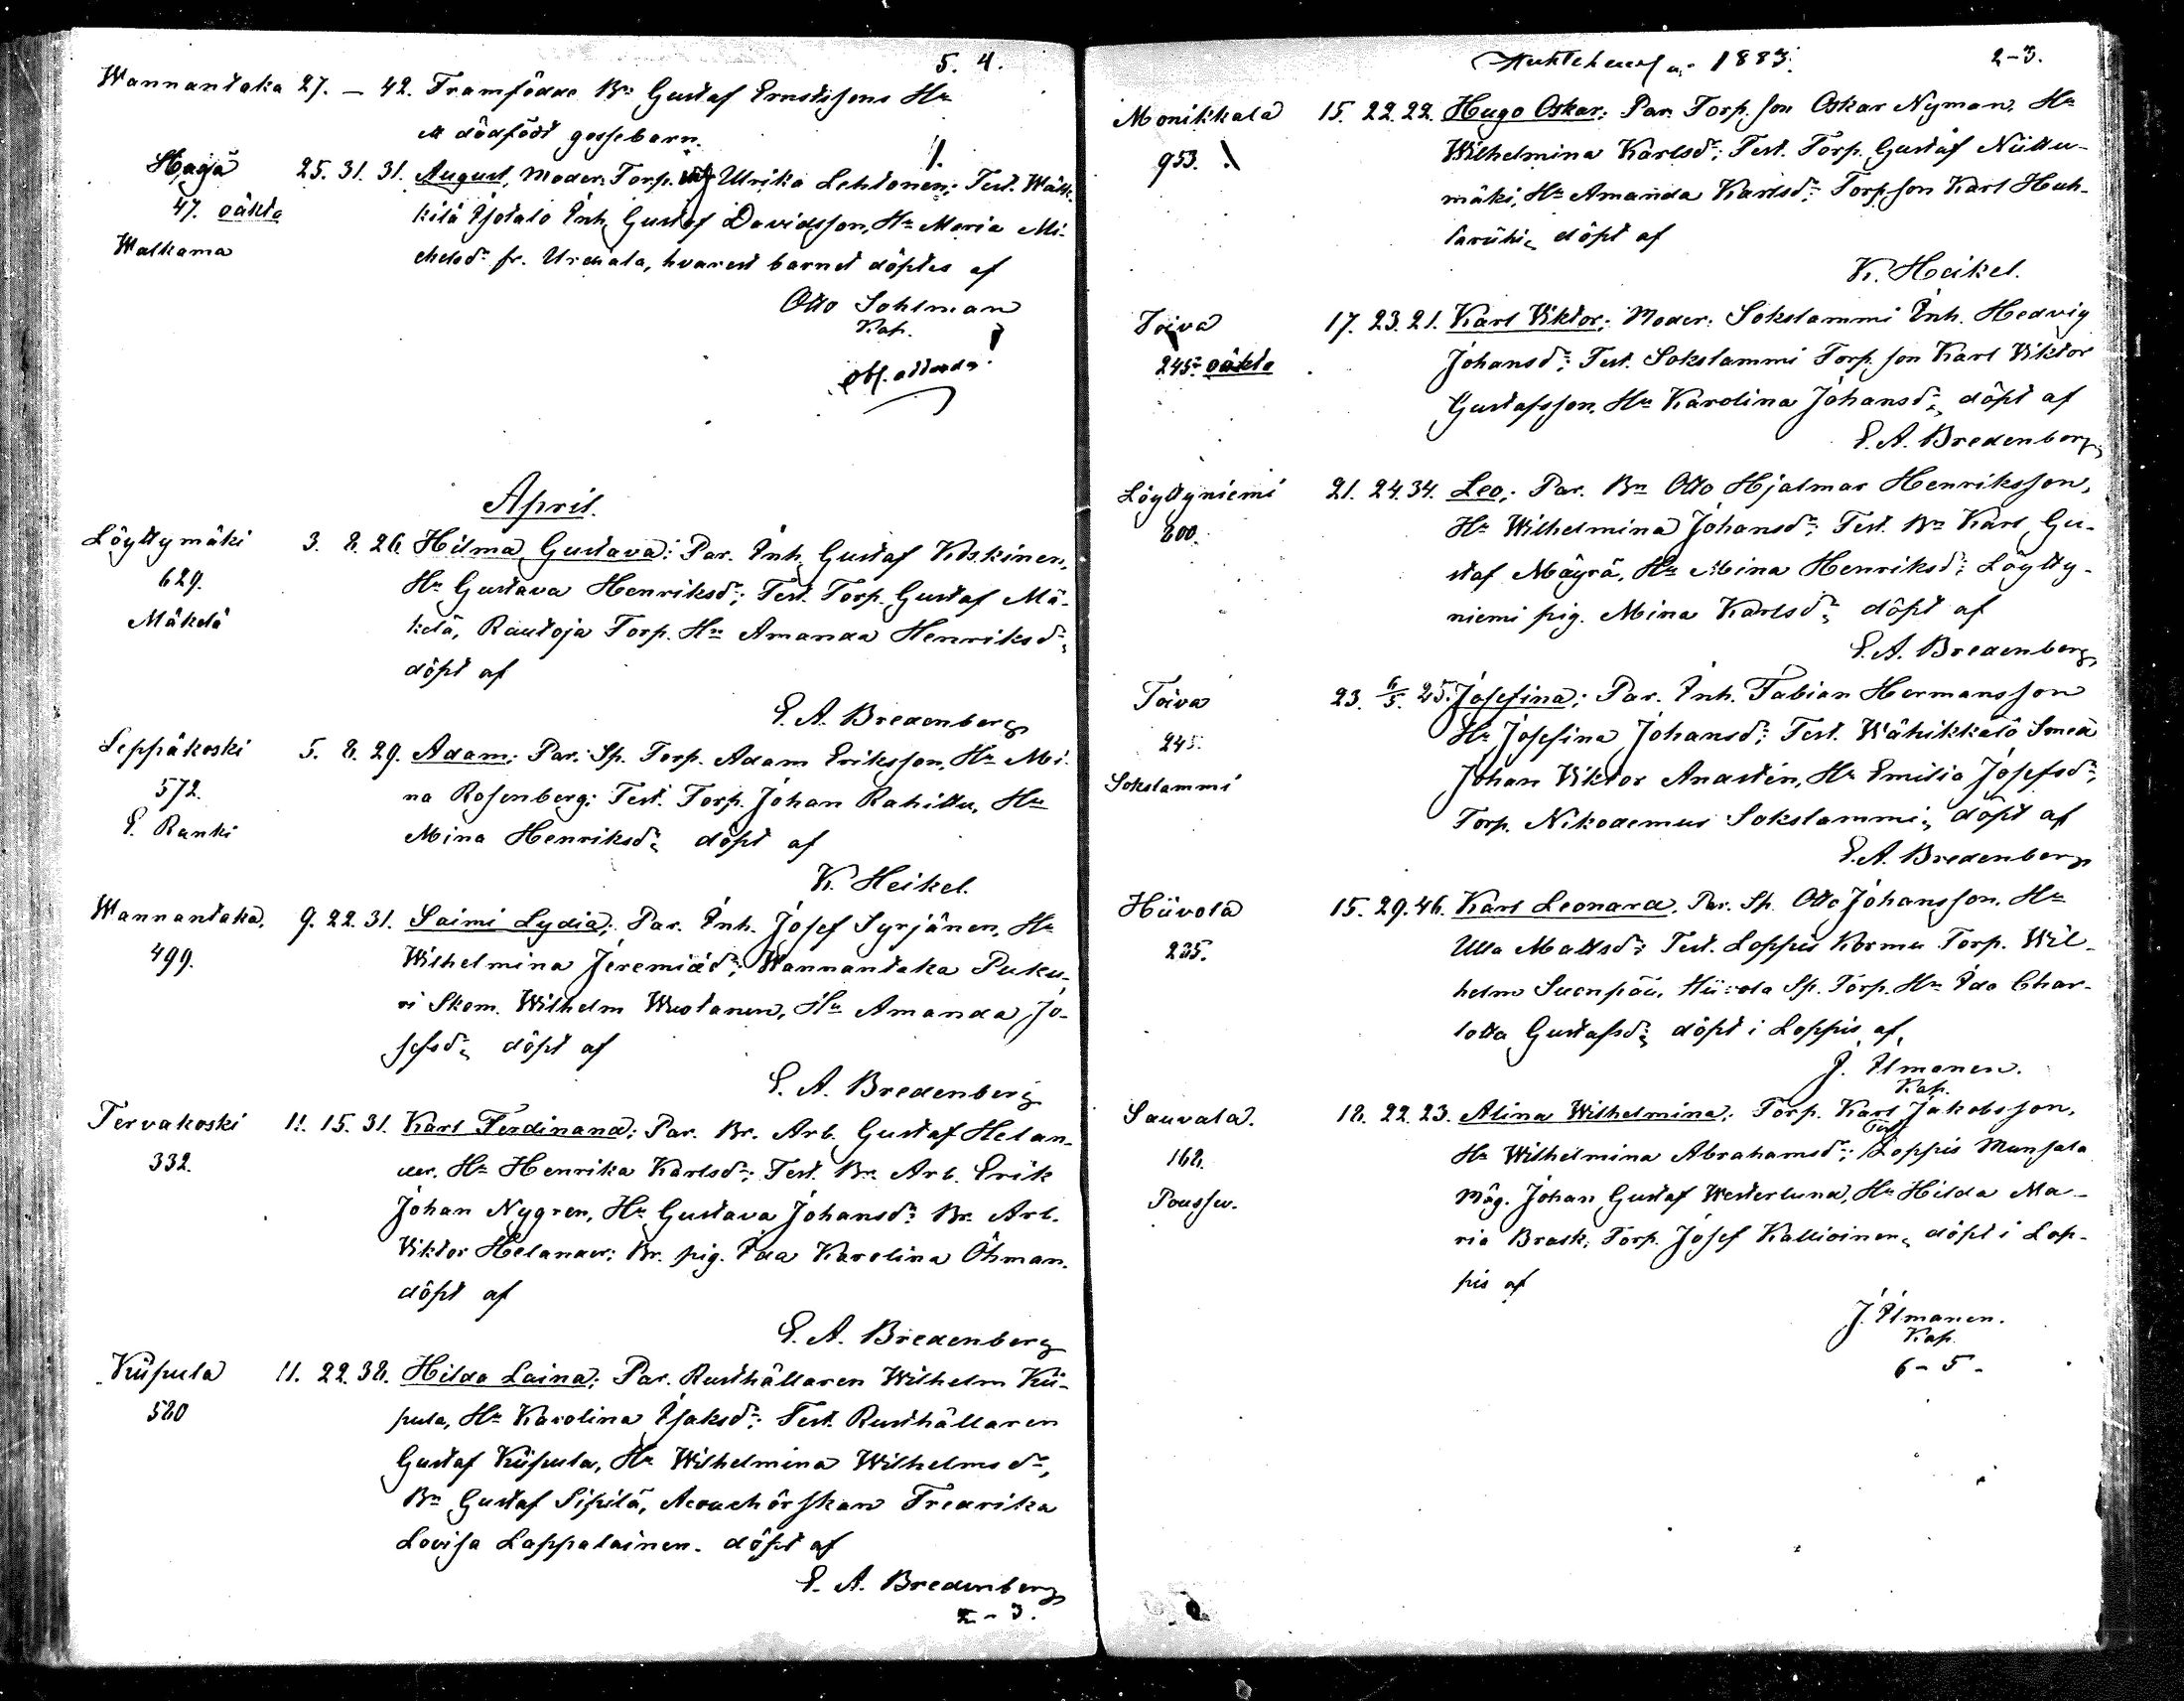 5. 4.
Wannantaka 27. — 42. Framfödde Bn Gustaf Ernstssons Hu
ett dödfödt gossebarn.
Haga 25. 31. 31. August, Moder: Torp. Ulrika Lehtonen; Test.
47. oäkta Gustaf Davidsson, Hu Maria Mi-
Walkama chelsdr fr. Urdiala, hvarest barnet döptes af
Otto Sohlman
Kap.
April.
Löyttymäki 3. 8. 26. Hilma Gustava: Par. Inh. Gustaf Koskinen,
629. Hu Gustava Henriksdr; Test. Torp. Gustaf Mä-
Mäkelä kelä, Rautoja Torp. Hu Amanda Henriksdr,
döpt af
E. A. Bredenberg
Leppäkoski 5. 8. 29. Adam: Par. Sp. Torp. Adam Eriksson, Hu Mi-
572. na Rosenberg; Test. Torp. Johan Rahittu, Hu
E. Ranki Mina Henriksdr, döpt af
K. Heikel.
Wannantaka. 9. 22. 31. Saimi Lydia; Par. Inh. Josef Syrjänen, Hu
499. Wilhelmina Jeremiædr; Wannantaka Puku-
ri Skom. Wilhelm Hu Amanda Jo-
sefsdr, döpt af
E. A. Bredenberg
Tervakoski 11. 15. 31. Karl Ferdinand; Par. Br. Arb. Gustaf Helan-
332. der, Hu Henrika Karlsdr; Test. Br. Arb. Erik
Johan Nygren, Hu Gustava Johansdr Br. Arb.
Viktor Helander; Br. pig. Ida Karolina Öhman.
döpt af
E. A. Bredenberg
Kiipula 11. 22. 38. Hilda Laina; Par. Rusthållaren Wilhelm Kii-
580 pula, Hu Karolina Isaksdr; Test. Rusthållaren
Gustaf Kiipula, Hu Wilhelmina Wilhelmsdr,
Bn Gustaf Sipilä, Acouchörskan Fredrika
Lovisa Lappalainen. döpt af
E. A. Bredenberg
2-3.
1883. 2-3.
Monikkala 15. 22. 22. Hugo Oskar; Par. Torp. son Oskar Nyman, Hu
953. Wilhelmina Karlsdr; Test. Torp. Gustaf Niittu-
mäki, Hu Amanda Karlsdr; Torp. son Karl Huh-
tariihi, döpt af
K. Heikel.
Toiva 17. 23. 21. Karl Viktor; Moder: Sokslammi Inh. Hedvig
245. oäkta Johansdr; Test. Sokslammi Torp. son Karl Viktor
Gustafsson, Hu Karolina Johansdr, döpt af
E. A. Bredenberg
Löyttyniemi 21. 24. 34. Leo; Par. Bn Otto Hjalmar Henriksson,
800. Hu Wilhelmina Johansdr; Test. Bn Karl Gu-
staf Mäyrä, Hu Mina Henriksdr; Löytty-
niemi pig. Mina Karlsdr, döpt af
E. A. Bredenberg
Toiva 23. 6/5. 25. Josefina; Par. Inh. Fabian Hermansson
245. Hu Josefina Johansdr; Test. Wähikkälä Smed
Sokslammi Johan Viktor Anstén, Hu Emilia Josefsdr;
Torp. Nikodemus Sokslammi, döpt af
E. A. Bredenberg
Hiivola 15. 29. 46. Karl Leonard, Par. Sp. Otto Johansson, Hu
235. Ulla Mattsdr; Test. Loppis Kormu Torp. Wil-
helm Suonpää, Hiivola Sp. Torp. Hu Ida Char-
lotta Gustafsdr, döpt i Loppis af,
J. Ilmonen.
Kap.
Sauvala. 18. 22. 23. Alina Wilhelmina; Torp. Karl Jakobsson,
168. Hu Wilhelmina Abrahamsdr; Test. Loppis Munsala
Måg. Johan Gustaf Westerlund, Hu Hilda Ma-
ria Brask, Torp. Josef Kallioinen, döpt i Lop-
pis af
J. Ilmonen.
Kap.
6-5-